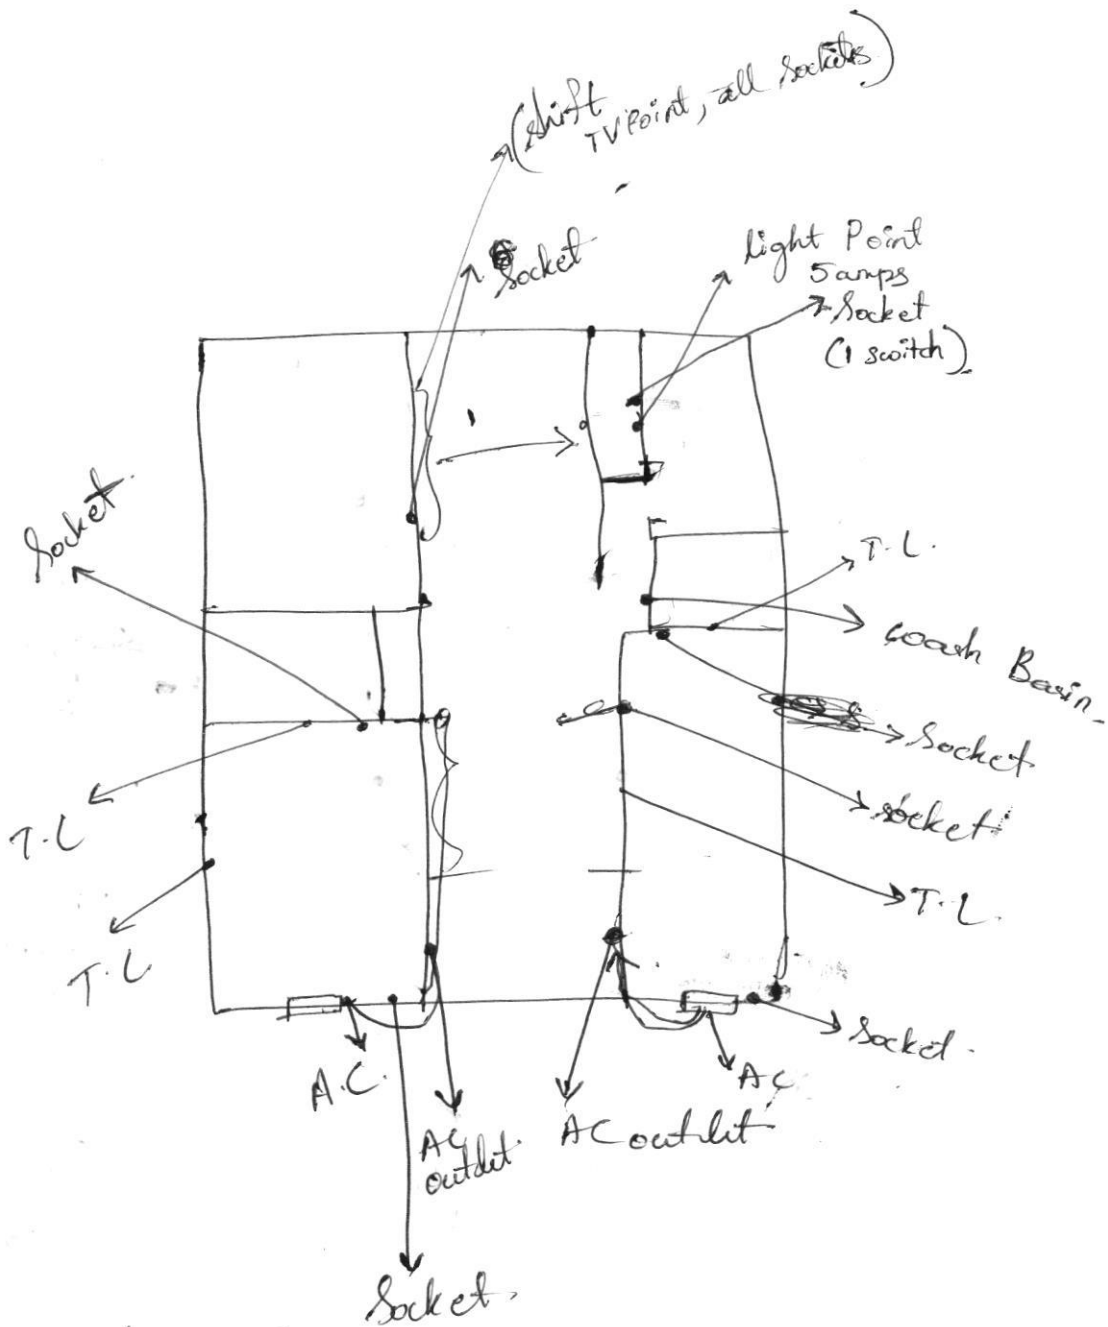 (Shift
TV Point, all sockets)
Socket
light Point
5 amps
Socket
(1 switch)
Socket
T.L.
Wash Basin
Socket
socket
T.L
T.L
T.L.
Socket
A.C.
AC
AC
outlet
AC outlet
Socket